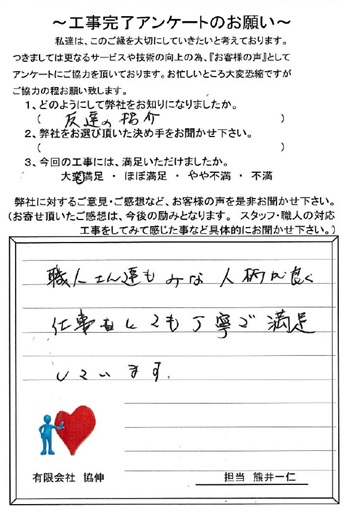 ～工事完了アンケートのお願い～
私達は、このご縁を大切にしていきたいと考えております。
つきましては更なるサービスや技術の向上の為、『お客様の声』として
アンケートにご協力を頂いております。お忙しいところ大変恐縮ですが
ご協力の程お願い致します。
1、どのようにして弊社をお知りになりましたか。
( 友達の紹介 )
2、弊社をお選び頂いた決め手をお聞かせ下さい。
( )
3、今回の工事には、満足いただけましたか。
大変満足 ・ ほぼ満足 ・ やや不満 ・ 不満
弊社に対するご意見・ご感想など、お客様の声を是非お聞かせ下さい。
(お寄せ頂いたご感想は、今後の励みとなります。 スタッフ・職人の対応
工事をしてみて感じた事など具体的にお聞かせ下さい。)
職人さん達もみな人柄が良く
仕事もとても丁寧で満足
しています。
有限会社 協伸
担当 熊井一仁